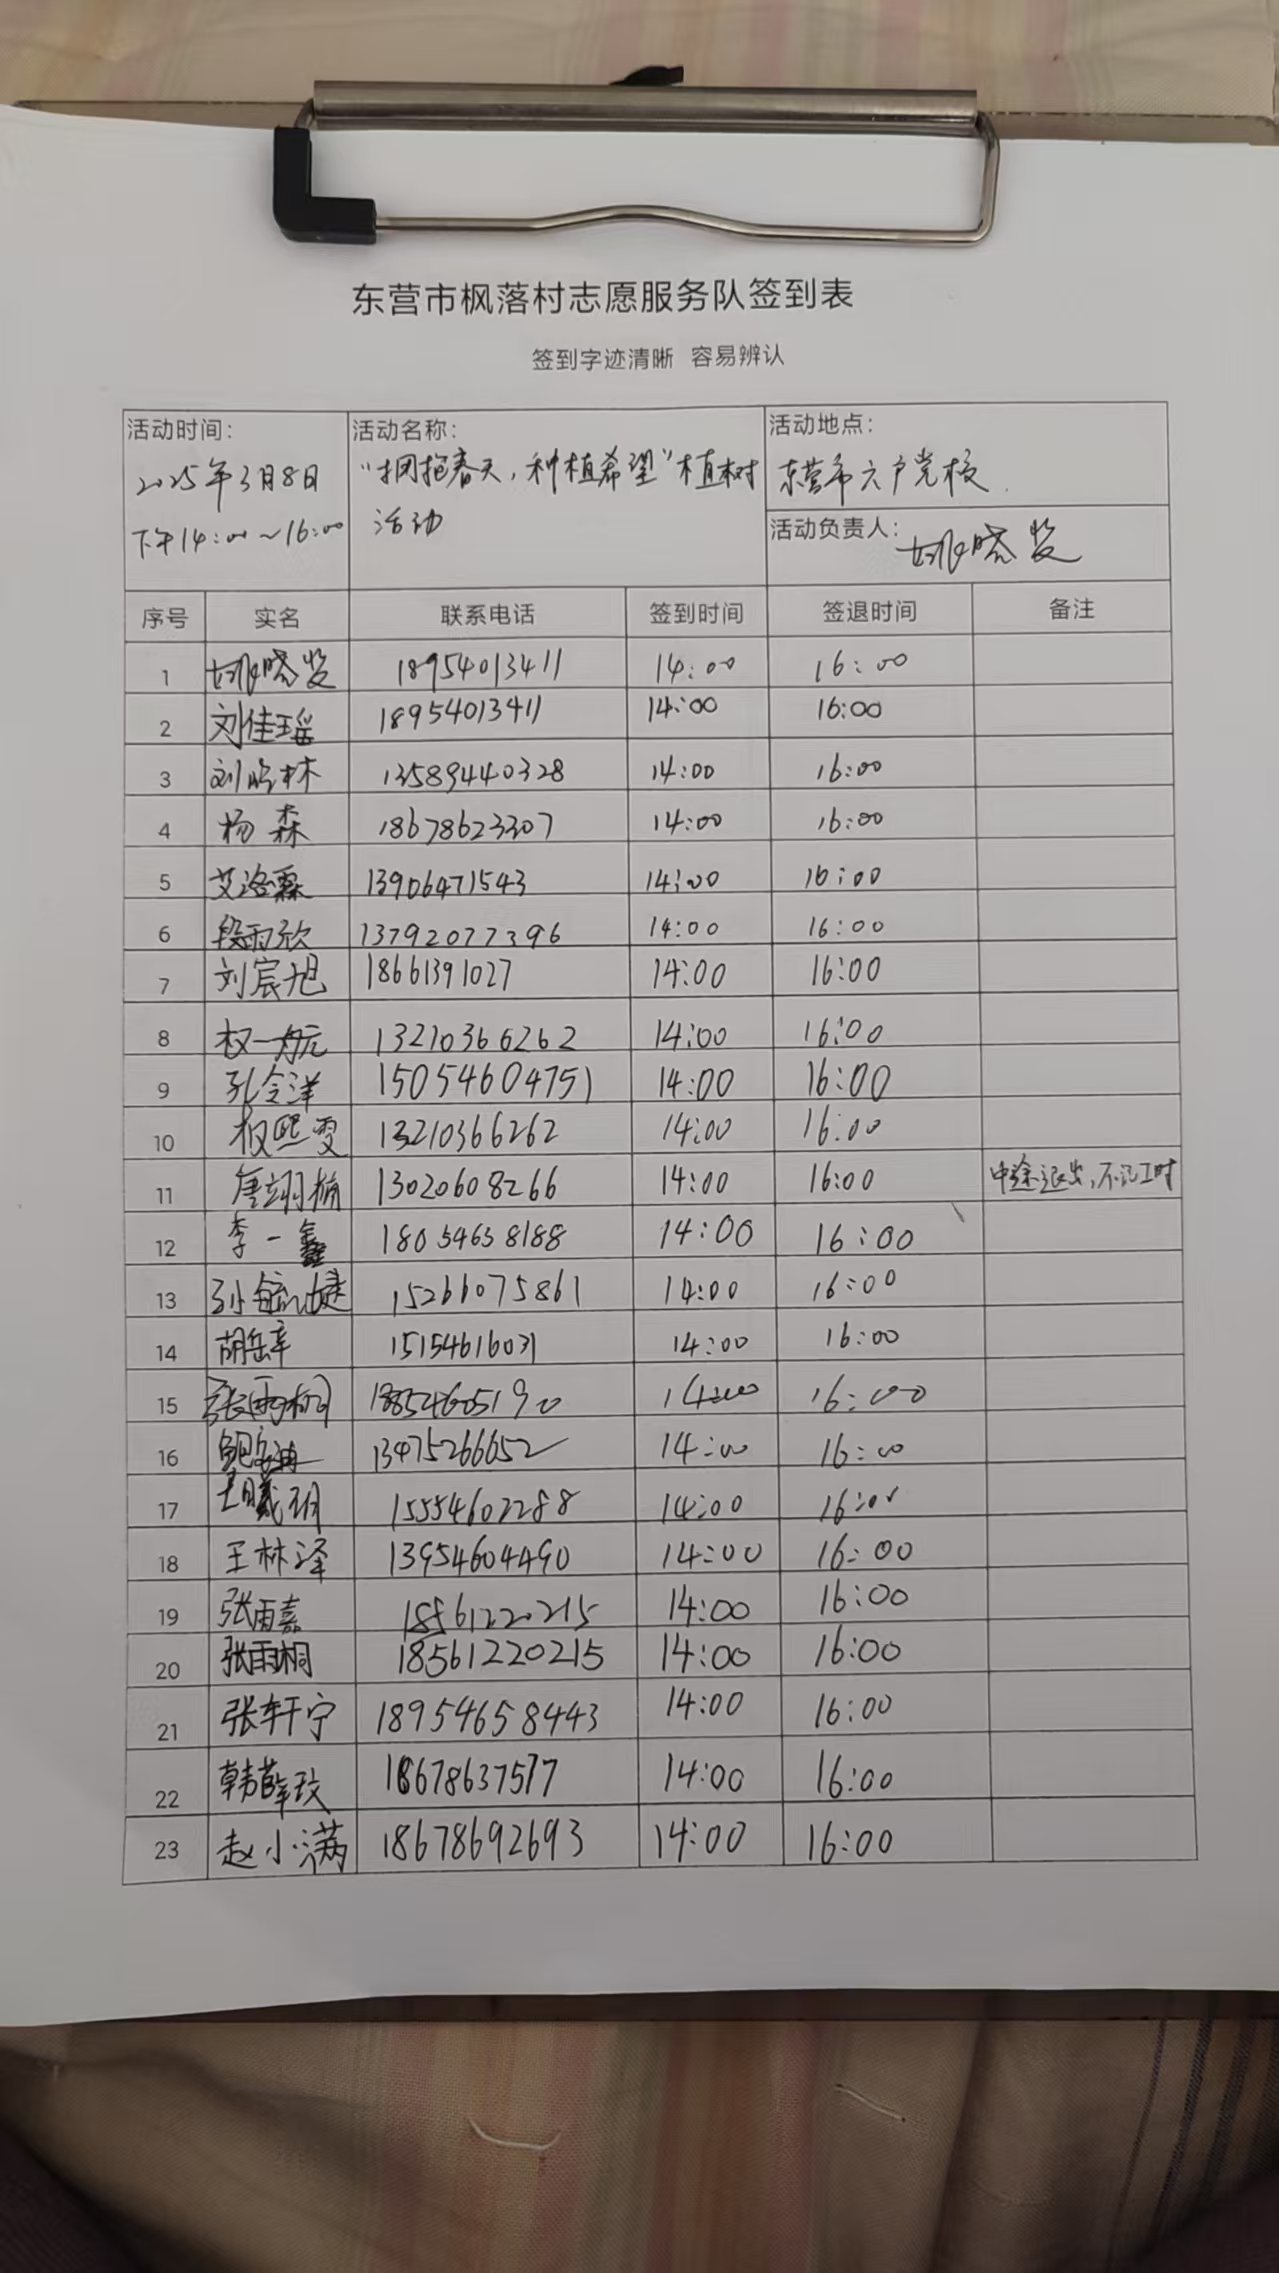 东营市枫落村志愿服务队签到表
签到字迹清晰 容易辨认
活动时间: 活动名称: 活动地点:
2025年3月8日 "拥抱春天,种植希望"植树 东营市六户党校
下午14:00~16:00 活动 活动负责人: 姚晓
序号 实名 联系电话 签到时间 签退时间 备注
1 姚晓 18954013411 14:00 16:00
2 刘佳瑶 18954013411 14:00 16:00
3 刘林 13589440328 14:00 16:00
4 杨森 18678623307 14:00 16:00
5 艾洛霖 13906471543 14:00 16:00
6 段雨欣 13792077396 14:00 16:00
7 刘宸旭 18661391027 14:00 16:00
8 权一航 13210366262 14:00 16:00
9 孔令洋 15054604751 14:00 16:00
10 权熙雯 13210366262 14:00 16:00
11 唐翊楠 13020608266 14:00 16:00 中途退出,不记工时
12 李一鑫 18054658188 14:00 16:00
13 孙 15266075861 14:00 16:00
14 胡岳 15154616031 14:00 16:00
15 张雨桐 18854605190 14:00 16:00
16 鲍 13475266652 14:00 16:00
17 王曦玥 15554602288 14:00 16:00
18 王林泽 13954604490 14:00 16:00
19 张雨嘉 18561220215 14:00 16:00
20 张雨桐 18561220215 14:00 16:00
21 张轩宁 18954658443 14:00 16:00
22 韩薛玟 18678637517 14:00 16:00
23 赵小满 18678692693 14:00 16:00